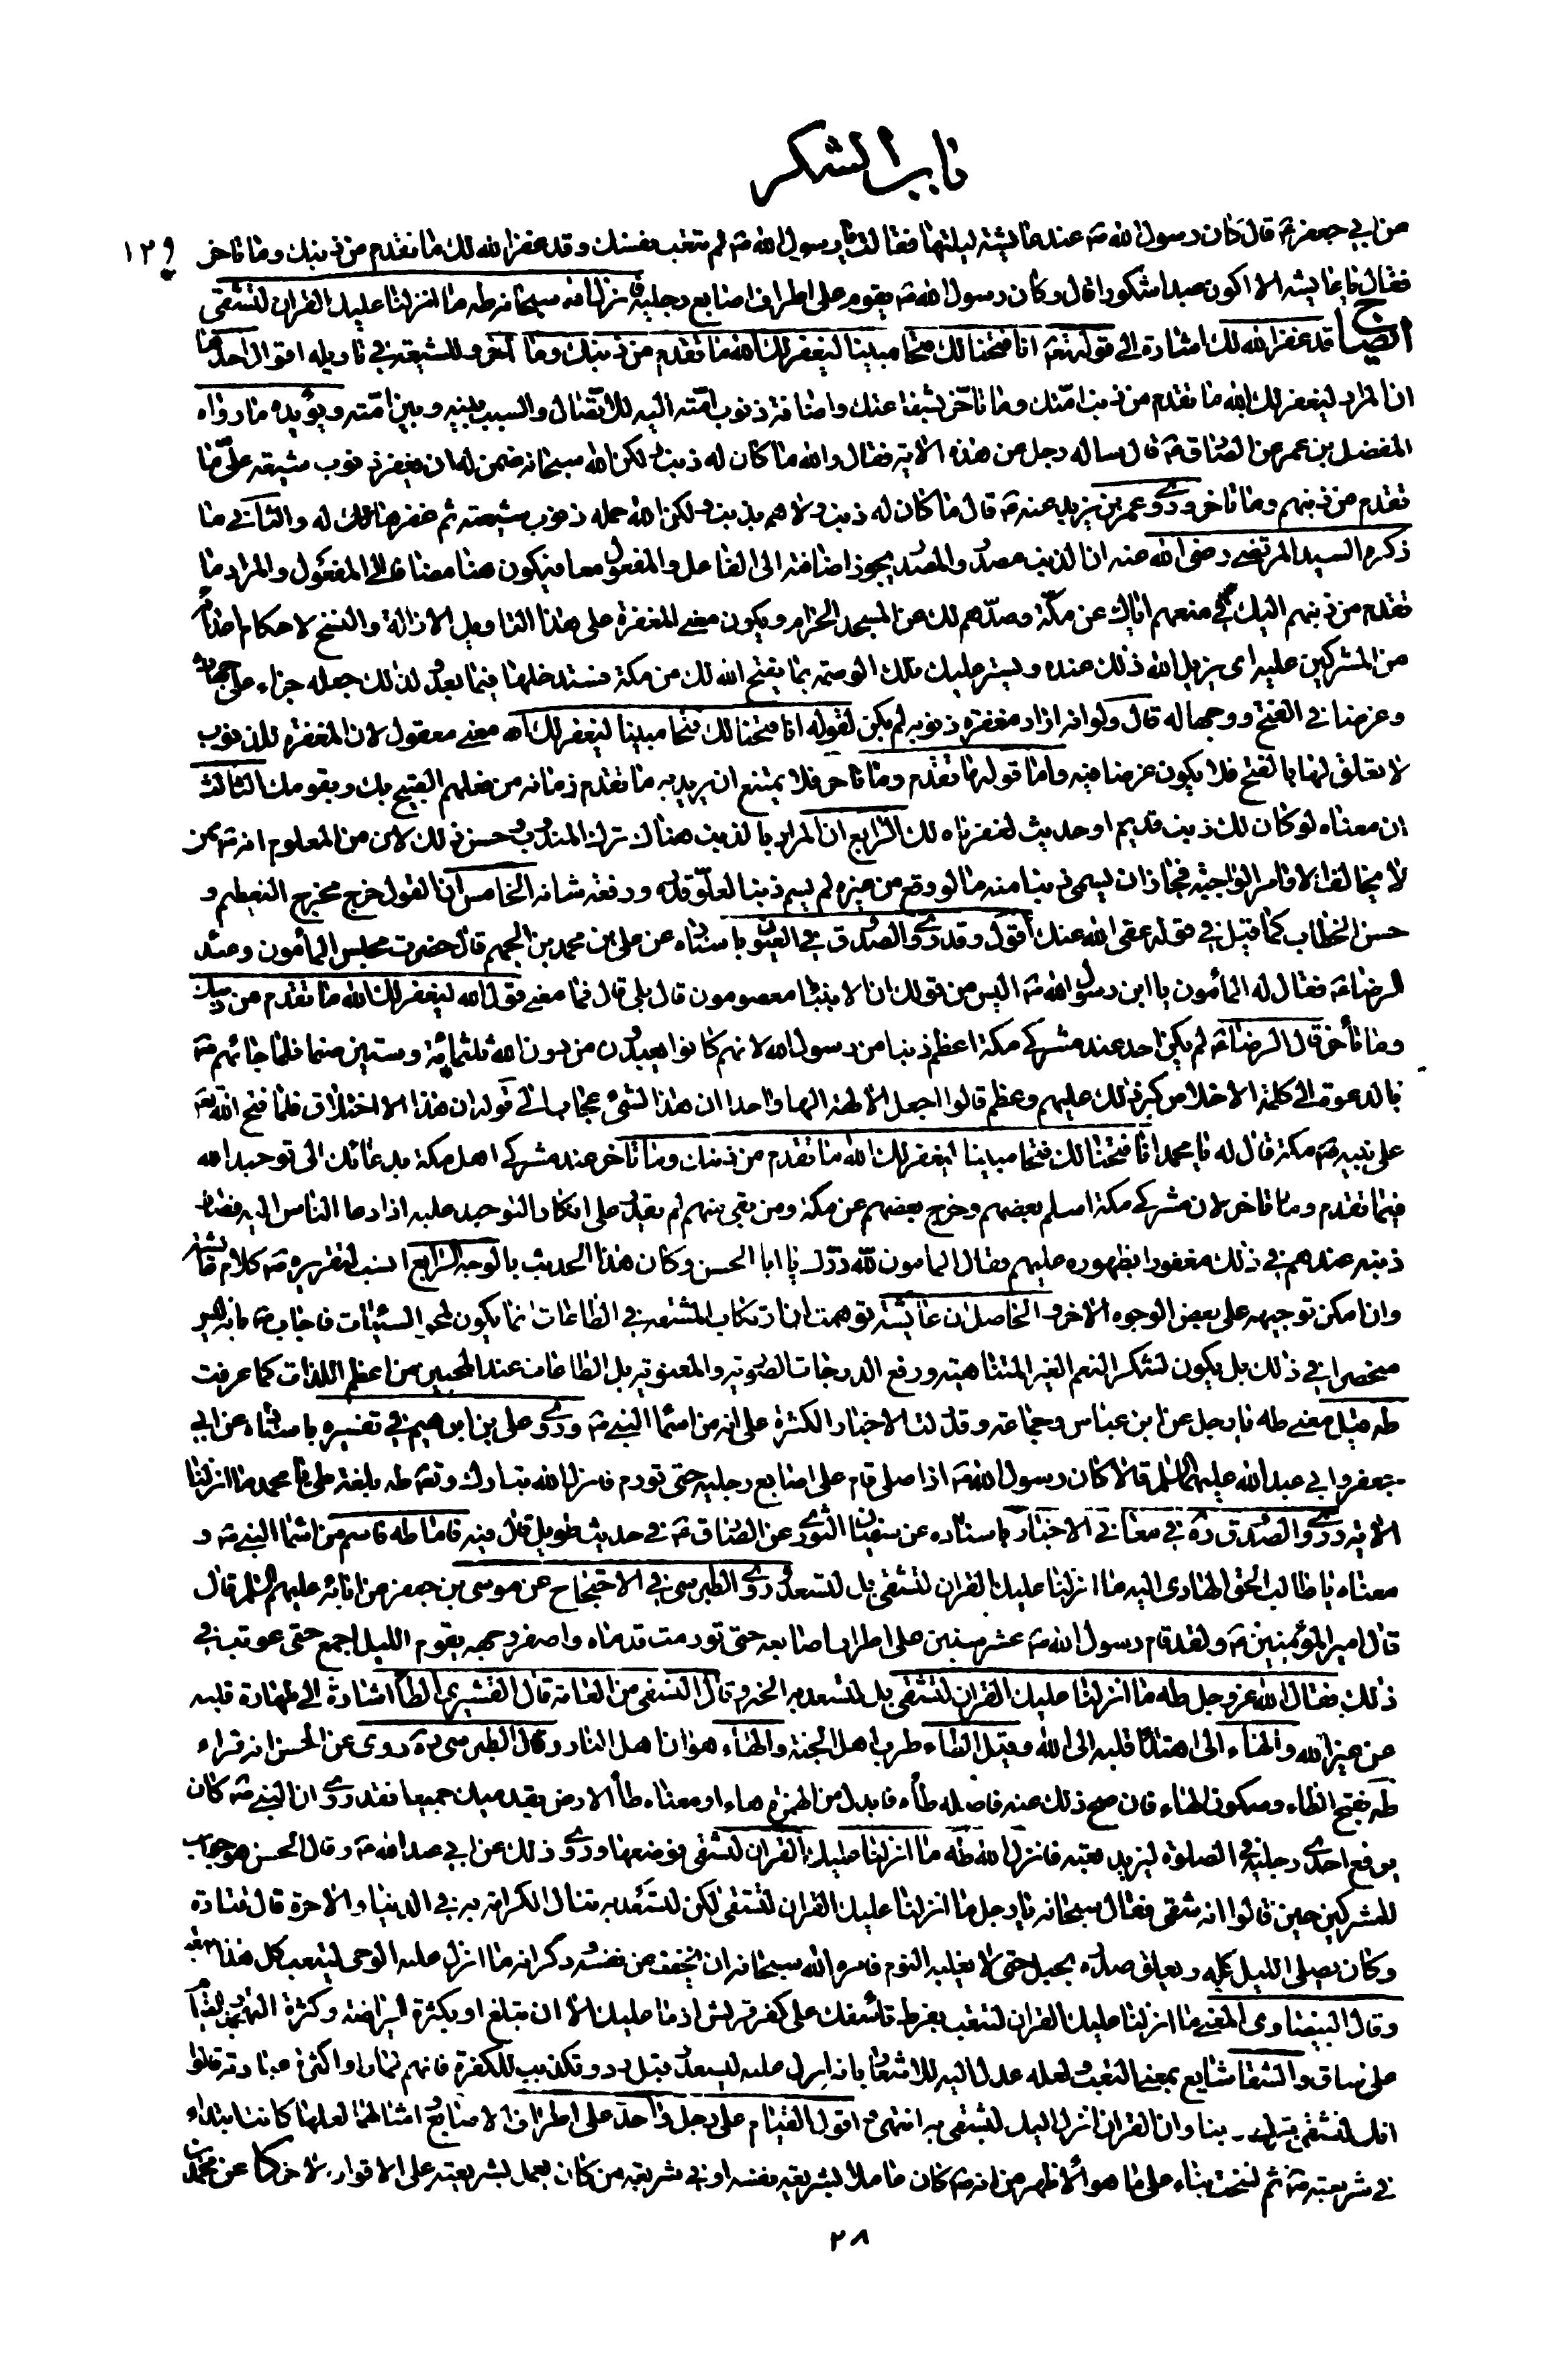 باب الشكر
١٢٩
عن ابي جعفر ع قال كان رسول الله ص عند عايشة ليلتها فقالت يا رسول الله ص لم تتعب نفسك وقد غفر الله لك ما تقدم من ذنبك وما تاخر
فقال يا عايشة الا اكون عبدا شكورا قال وكان رسول الله ص يقوم على اطراف اصابع رجليه فانزل الله سبحانه طه ما انزلنا عليك القران لتشقى
ايضاح قد غفر الله لك اشارة الى قوله تعالى انا فتحنا لك فتحا مبينا ليغفر لك الله ما تقدم من ذنبك وما تاخر وللشيعة في تاويله اقوال احدها
ان المراد ليغفر لك الله ما تقدم من ذنب امّتك وما تاخّر بشفاعتك واضافة ذنوب امّته اليه للاتّصال والسبب بينه وبين امّته ويؤيده ما رواه
المفضل بن عمر عن الصادق ع قال ساله رجل عن هذه الاية فقال والله ما كان له ذنب ولكن الله سبحانه ضمن له ان يغفر ذنوب شيعة علي ع ما
تقدم من ذنبهم وما تاخر وروى عمر بن يزيد عنه ع قال ما كان له ذنب ولا هم بذنب ولكن الله حمله ذنوب شيعته ثم غفرها له والثاني ما
ذكره السيد المرتضى رضي الله عنه ان الذنب مصدر والمصدر يجوز اضافته الى الفاعل والمفعول معا فيكون هنا مضافا الى المفعول والمراد ما
تقدم من ذنبهم اليك في منعهم اياك عن مكّة وصدّهم لك عن المسجد الحرام ويكون معنى المغفرة على هذا التاويل الازالة والنسخ لاحكام اعدائه
من المشركين عليه اى يزيل الله ذلك عنده ويستر عليك تلك الوصمة بما يفتح الله لك من مكة فستدخلها فيما بعد لذلك جعله جزاء على جهاده
وغرضا في الفتح ووجها له قال ولو انه اراد مغفرة ذنوبه لم يكن لقوله انا فتحنا لك فتحا مبينا ليغفر لك الله معنى معقول لان المغفرة للذنوب
لا تعلق لها بالفتح فلا يكون غرضا فيه واما قوله ما تقدم وما تاخر فلا يمتنع ان يريد به ما تقدم زمانه من فعلهم القبيح بك وبقومك الثالث
ان معناه لو كان لك ذنب قديم او حديث لغفرناه لك الرابع ان المراد بالذنب هناك ترك المندوب وحسن ذلك لان من المعلوم انه ص ممن
لا يخالف الاوامر الواجبة فجاز ان يسمى ذنبا منه ما لو وقع من غيره لم يسم ذنبا لعلوّ قدره ورفعة شانه الخامس ان القول خرج مخرج التعظيم و
حسن الخطاب كما قيل في قوله عفى الله عنك اقول وقد روى الصدوق في العيون باسناده عن علي بن محمد بن الجهم قال حضرت مجلس المأمون وعنده
الرضا ع فقال له المأمون يا ابن رسول الله ص اليس من قولك ان الانبياء معصومون قال بلى قال فما معنى قول الله ليغفر لك الله ما تقدم من ذنبك
وما تأخر قال الرضا ع لم يكن احد عند مشركي مكة اعظم ذنبا من رسول الله لانهم كانوا يعبدون من دون الله ثلثمائة وستين صنما فلما جائهم ص
بالدعوة الى كلمة الاخلاص كبر ذلك عليهم وعظم قالوا اجعل الالهة الها واحدا ان هذا لشىء عجاب الى قوله ان هذا الا اختلاق فلما فتح الله تعالى
على نبيه ص مكة قال له يا محمد انا فتحنا لك فتحا مبينا ليغفر لك الله ما تقدم من ذنبك وما تاخر عند مشركي اهل مكة بدعائك الى توحيد الله
فيما تقدم وما تاخر لان مشركي مكة اسلم بعضهم وخرج بعضهم عن مكة ومن بقي منهم لم يقدر على انكار التوحيد عليه اذا دعا الناس اليه فصار
ذنبه عندهم في ذلك مغفورا بظهوره عليهم فقال المامون لله درّك يا ابا الحسن وكان هذا الحديث بالوجه الرابع انسب لتقريره ص كلام عايشة
وان امكن توجيهه على بعض الوجوه الاخر والحاصل ان عايشة توهمت ان ارتكاب المشقة في الطاعات انما يكون لمحو السيئات فاجاب ص بانه ليس
منحصرا في ذلك بل يكون لشكر النعم الغير المتناهية ورفع الدرجات الصورية والمعنوية بل الطاعات عند المحبين من اعظم اللذات كما عرفت
طه قيل معنى طه يا رجل عن ابن عباس وجماعة وقد دلت الاخبار الكثيرة على انه من اسماء النبي ص وروى علي بن ابراهيم في تفسيره باسناده عن ابي
جعفر وابي عبد الله عليهما السلم قالا كان رسول الله ص اذا صلى قام على اصابع رجليه حتى تورم فانزل الله تبارك وتعالى طه بلغة طي يا محمد ما انزلنا
الاية وروى الصدوق ره في معاني الاخبار باسناده عن سفيان الثوري عن الصادق ع في حديث طويل قال فيه فاما طه فاسم من اسماء النبي ص و
معناه يا طالب الحق الهادى اليه ما انزلنا عليك القران لتشقى بل لتسعد وروى الطبرسي في الاحتجاج عن موسى بن جعفر عن ابائه عليهم السلم قال
قال امير المؤمنين ع ولقد قام رسول الله ص عشر سنين على اطراف اصابعه حتى تورمت قدماه واصفر وجهه يقوم الليل اجمع حتى عوتب في
ذلك فقال الله عز وجل طه ما انزلنا عليك القران لتشقى بل لتسعد به الخبر وقال النسفي من العامة قال القشيري الطاء اشارة الى طهارة قلبه
عن غير الله والهاء الى اهتداء قلبه الى الله وقيل الطاء طرب اهل الجنة والهاء هوان اهل النار وقال الطبرسي ره روى عن الحسن انه قراء
طَه بفتح الطاء وسكون الهاء فان صح ذلك عنه فاصله طاه فابدل من الهمزة هاء او معناه طأ الارض بقدميك جميعا فقد روى ان النبي ص كان
يرفع احدى رجليه في الصلوة ليزيد تعبه فانزل الله طه ما انزلنا عليك القران لتشقى فوضعها وروى ذلك عن ابي عبد الله ع وقال الحسن هو جواب
للمشركين حين قالوا انه شقى فقال سبحانه يا رجل ما انزلنا عليك القران لتشقى لكن لتسعد به تنال الكرامة به في الدنيا والاخرة قال قتادة
وكان يصلى الليل كله ويعلق صدره بحبل حتى لا يغلبه النوم فامره الله سبحانه ان يخفف عن نفسه وذكر انه ما انزل عليه الوحى ليتعب كل هذا التعب
وقال البيضاوى المعنى ما انزلنا عليك القران لتتعب بفرط تأسفك على كفر قريش اذ ما عليك الا ان تبلغ او بكثرة الرياضة وكثرة التهجد والقيام
على ساق والشقاء شايع بمعنى التعب ولعله عدل اليه للاشعار بانه انزل عليه ليسعد وقيل رد وتكذيب للكفرة فانهم لما راوا كثرة عبادته قالوا
انك لتشقى بترك ديننا وان القران انزل اليك لتشقى به انتهى اقول القيام على رجل واحد على اطراف الاصابع وامثالهما لعلها كانت ابتداء
في شريعته ص ثم نسخت بناء على ما هو الاظهر من انه ص كان عاملا بشريعة نفسه او في شريعة من كان يعمل بشريعته على الاقوال الاخر كا عن محمد بن
٢٨